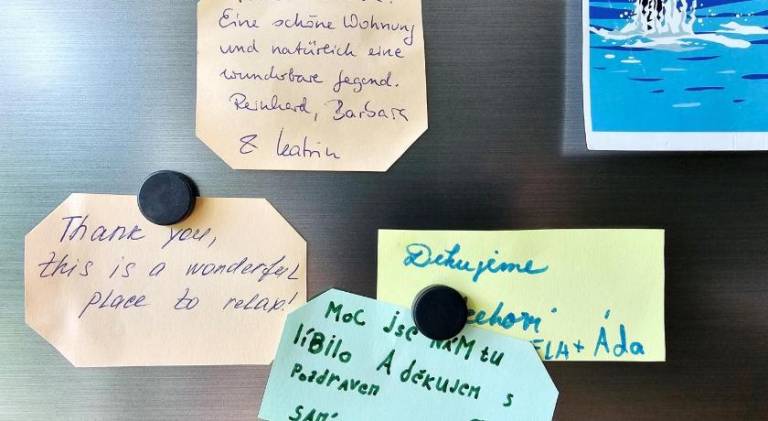 Eine schöne Wohnung
und natürlich eine
wunderbare Gegend.
Reinhard, Barbara
& Katrin
Thank you,
this is a wonderful
place to relax!
Děkujeme
Áda
MOC jsE NÁM tu
líBILO A děkujem s
Pozdravem